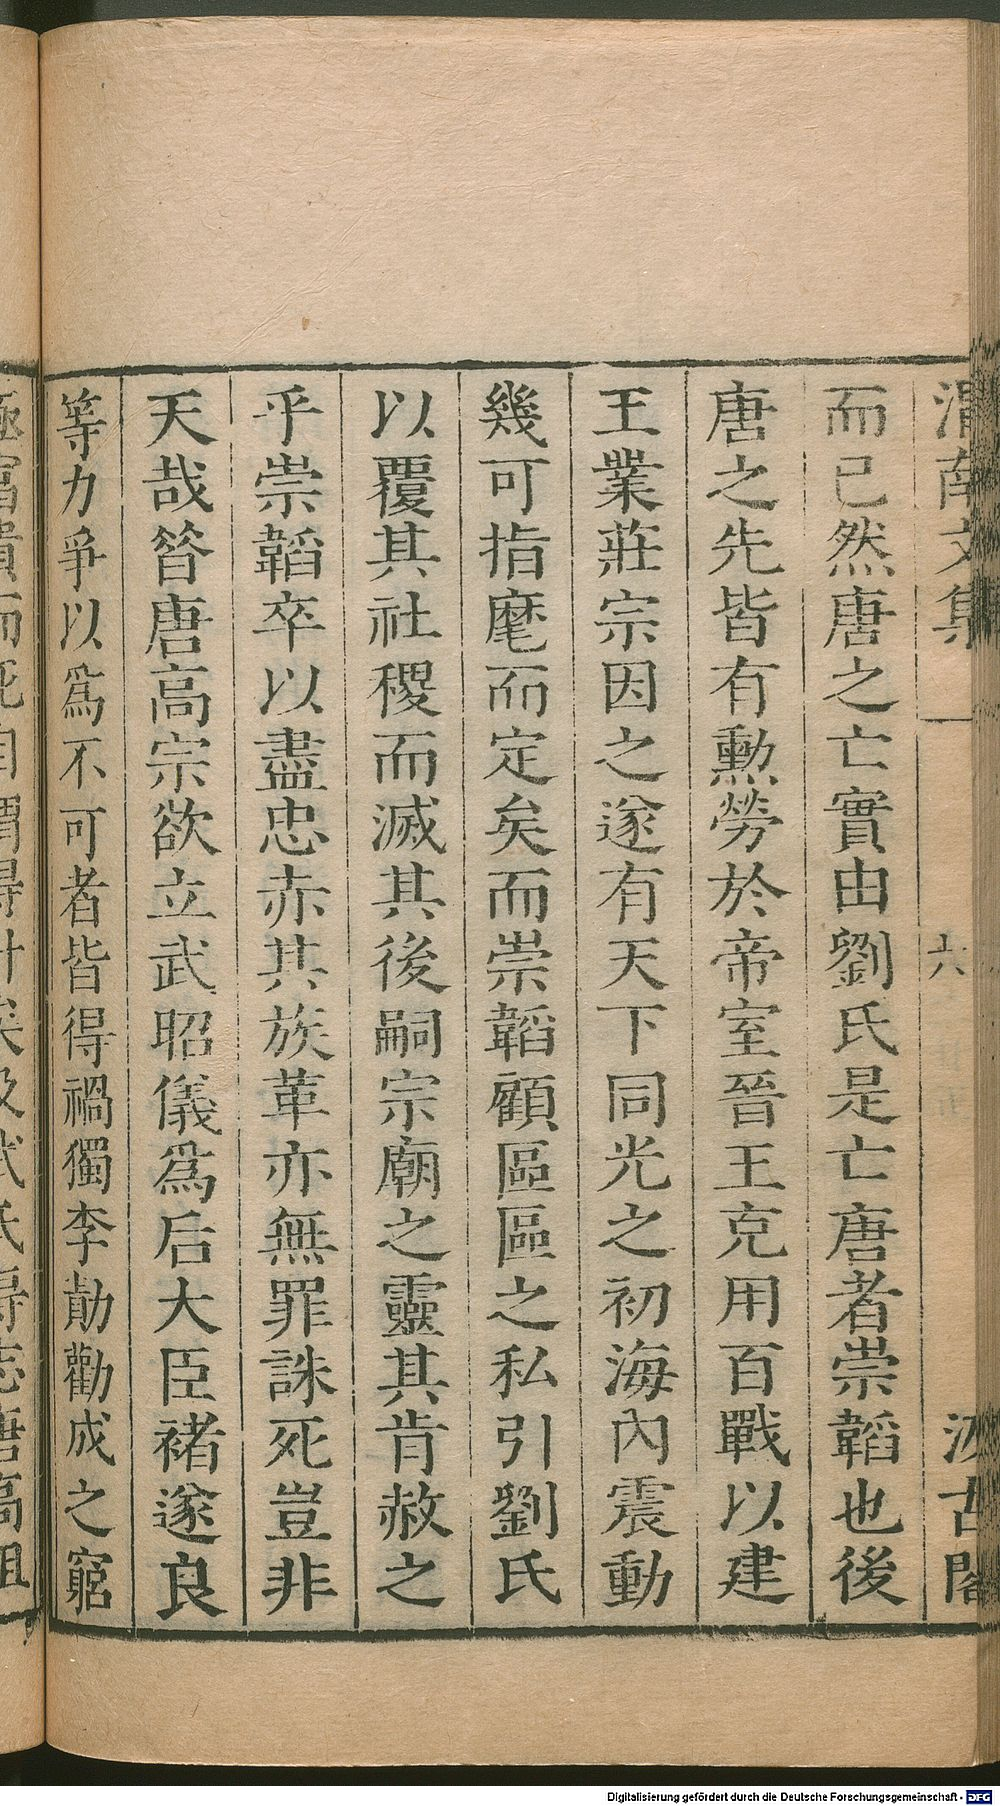 渭南文集
六
汲古閣
而已然唐之亡實由劉氏是亡唐者崇韜也後
唐之先皆有勳勞於帝室晉王克用百戰以建
王業莊宗因之遂有天下同光之初海內震動
幾可指麾而定矣而崇韜顧區區之私引劉氏
以覆其社稷而滅其後嗣宗廟之靈其肯赦之
乎崇韜卒以盡忠赤其族革亦無罪誅死豈非
天哉昝唐高宗欲立武昭儀爲后大臣褚遂良
等力爭以爲不可者皆得禍獨李勣勸成之窮
極富貴而死自謂得計矣及武氏得志唐高祖
Digitalisierung gefördert durch die Deutsche Forschungsgemeinschaft - DFG